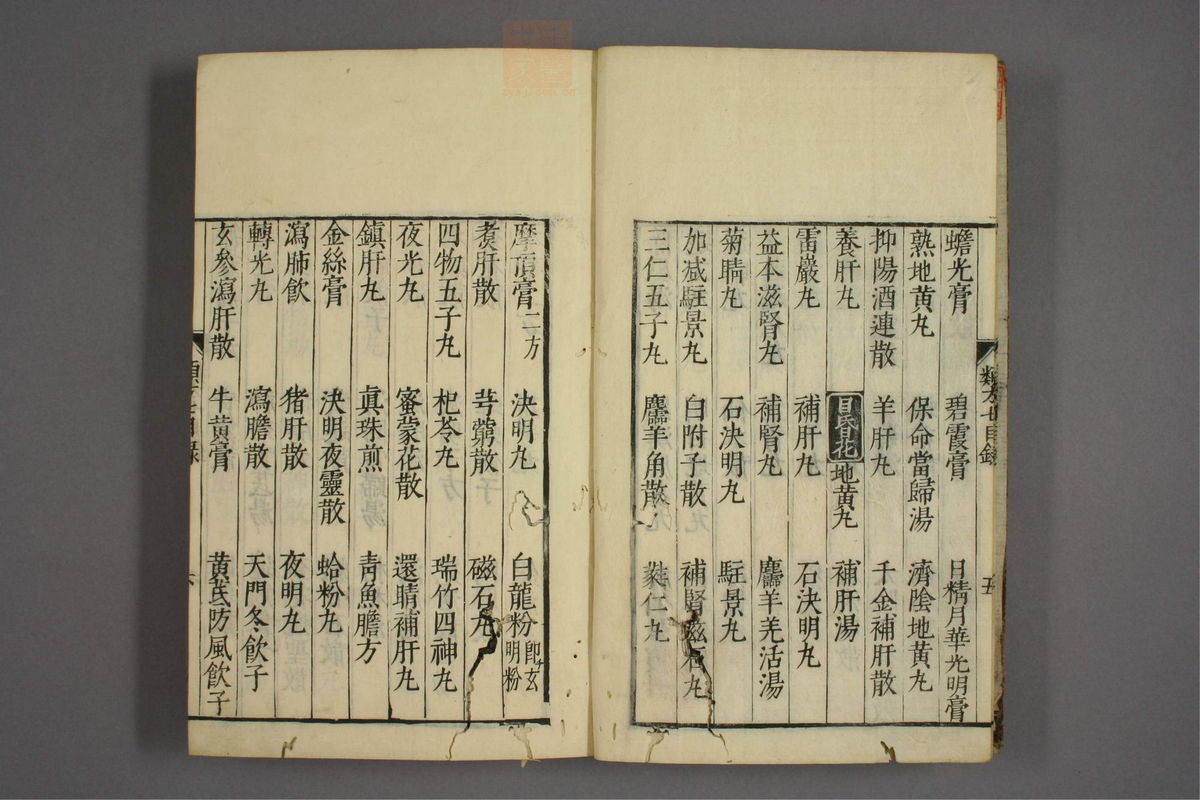 蟾光膏 碧霞膏 日精月華光明膏
熟地黄丸 保命當歸湯 濟陰地黄丸
抑陽酒連散 羊肝丸 千金補肝散
養肝丸 目昏花 地黄丸 補肝湯
雷巖丸 補肝丸 石決明丸
益本滋腎丸 補腎丸 羚羊羌活湯
菊睛丸 石決明丸 駐景丸
加减駐景丸 白附子散 補腎磁石丸
三仁五子丸 羚羊角散 蕤仁丸
類方七目錄 五
摩頂膏二方 決明丸 白龍粉即玄明粉
煑肝散 芎藭散 磁石丸
四物五子丸 杞苓丸 瑞竹四神丸
夜光丸 蜜蒙花散 還睛補肝丸
鎮肝丸 真珠煎 青魚膽方
金絲膏 決明夜靈散 蛤粉丸
瀉肺飲 猪肝散 夜明丸
轉光丸 瀉膽散 天門冬飲子
玄參瀉肝散 牛黄膏 黄芪防風飲子